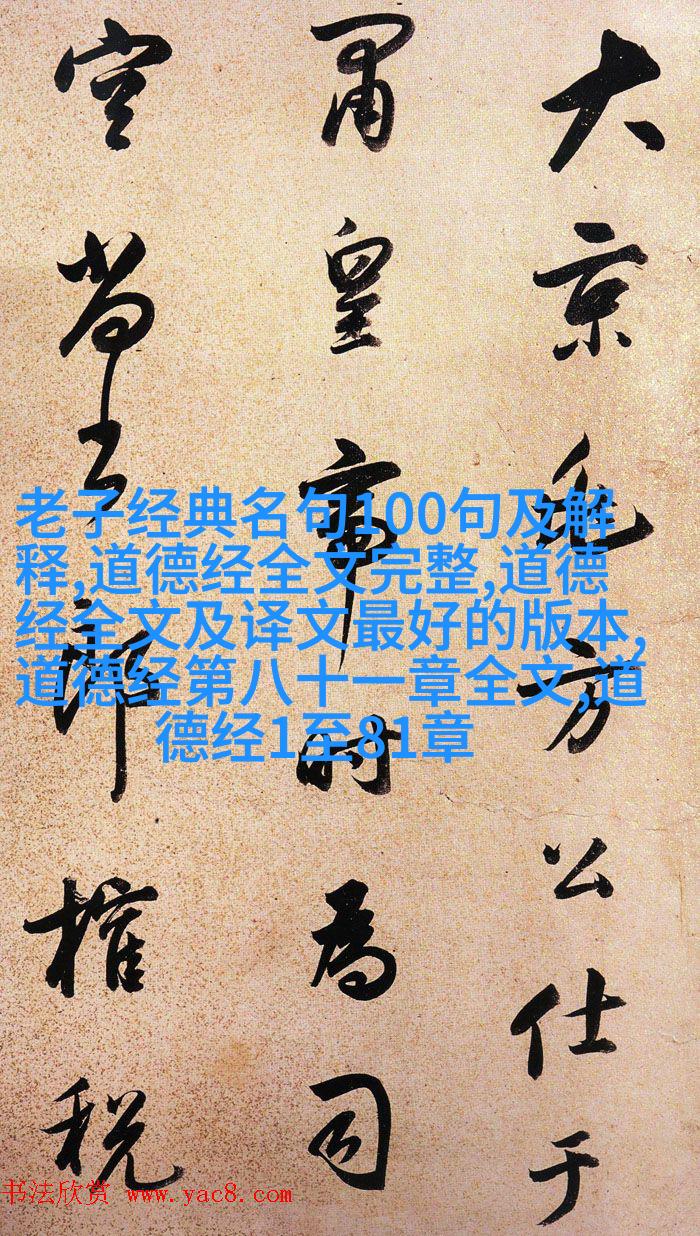 大京兆方公仕于
肅皇帝時為司
空尚書郎榷税
老子经典名句100句及解
释,道德经全文完整,道德
经全文及译文最好的版本,
道德经第八十一章全文,道
德经1至81章
书法欣赏 www.yac8.com